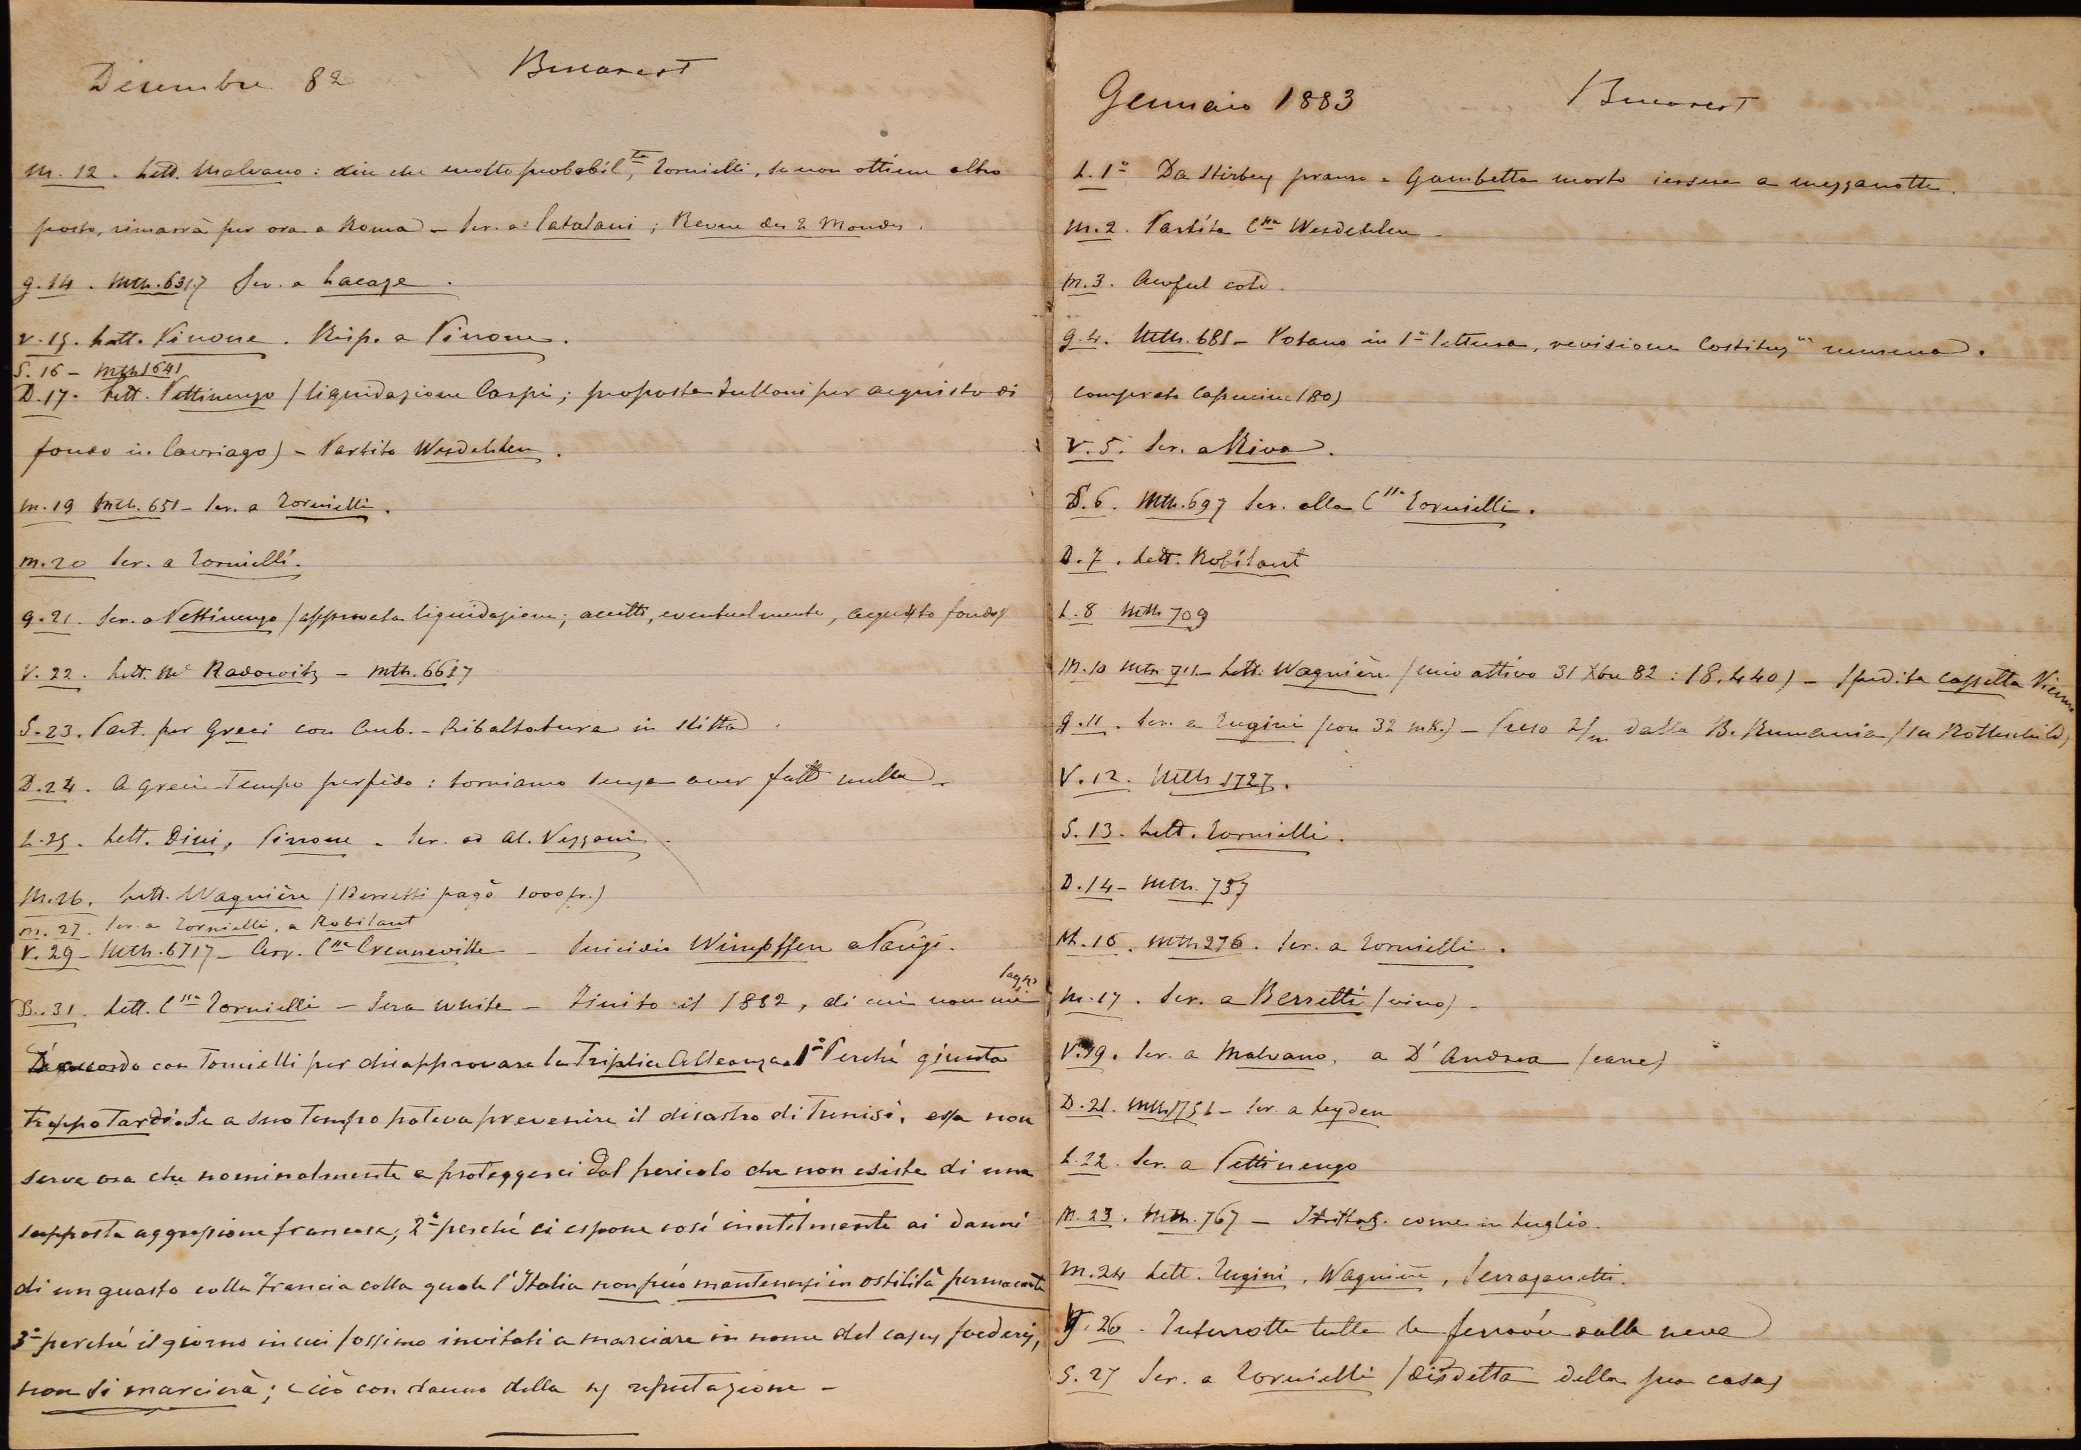 Dicembre 82 Bucarest
M. 12. Lett. Malvano: dice che molto probabil.te, Tornielli, se non ottiene altro
posto, rimarrà per ora a Roma – Scr. a Catalani; Revue des 2 Mondes.
G. 14. Mth. 631.7 Scr. a Lacaze.
V. 15. Lett. Pinone. Risp. a Pinone.
S. 16 – Mth 1641
D. 17. Lett. Pettinengo (liquidazione Carpi; proposta Tulloni per acquisto di
fondo in Cavriago) – Partito Wesdehlen.
M. 19 Mth. 651 – Scr. a Tornielli.
M. 20 Scr. a Tornielli.
G. 21. Scr. a Pettinengo (approvata liquidazione; accetto, eventualmente, acquisto fondo)
V. 22. Lett. Mc Radowitz – Mth. 6627
S. 23. Part. per Greci con Aub. – Ribaltatura in slitta.
D. 24. A Greci – Tempo perfido: torniamo senza aver fatto nulla –
L. 25. Lett. Dini, Pinone – Scr. ad Al. Vezzani.
M. 26. Lett. Wagnière (Berretti pagò 1000 fr.)
M. 27. Scr. a Tornielli, a Robilant
V. 29 – Mth. 6717 – Arr. C.ssa Crenneville – Suicidio Wimpffen a Parigi.
D. 31. Lett. C.ssa Tornielli – Sera White – Finito il 1882, di cui non mi lagno
D'accordo con Tornielli per disapprovare la Triplice Alleanza. 1° Perché giunta
troppo tardi. Se a suo tempo poteva prevenire il disastro di Tunisi, essa non
serve ora che nominalmente a proteggerci dal pericolo che non esiste di una
supposta aggressione francese; 2° perché ci espone così inutilmente ai danni
di un guasto colla Francia colla quale l'Italia non può mantenersi in ostilità permanente
3° perché il giorno in cui fossimo invitati a marciare in nome del casus foederis,
non si marcierà; e ciò con danno della reputazione –
Gennaio 1883 Bucarest
L. 1° Da Stirbey pranzo – Gambetta morto iersera a mezzanotte.
M. 2. Partita C.ssa Wesdehlen –
M. 3. Awful cold.
G. 4. Mth. 681 – Votano in 1a lettura, revisione Costituz.ne rumena.
comprato (80)
V. 5. Scr. a Riva.
S. 6. Mth. 697 Scr. alla C.ssa Tornielli.
D. 7. Lett. Robilant
L. 8 Mth 709
M. 10 Mth 711 – Lett. Wagnière (mio attivo 31 Xbre 82: 18.440) – Spedita cassetta Vienna
G. 11. Scr. a Lugini (con 32 mk.) – Preso 2/m dalla B. Rumania (su Rothschild)
V. 12. Mth 1727.
S. 13. Lett. Tornielli.
D. 14 – Mth. 737
M. 16. Mth 276. Scr. a Tornielli.
M. 17. Scr. a Berretti (vino) –
V. 19. Scr. a Malvano, a D'Andrea (cane)
D. 21. Mth 1751 – Scr. a Leyden
L. 22. Scr. a Pettinengo
M. 23. Mth. 767 – come in luglio.
M. 24 Lett. Lugini, Wagnière, Serrazanetti.
V. 26. Interrotte tutte le ferrovie dalla neve
S. 27 Scr. a Tornielli (disdetta della sua casa)